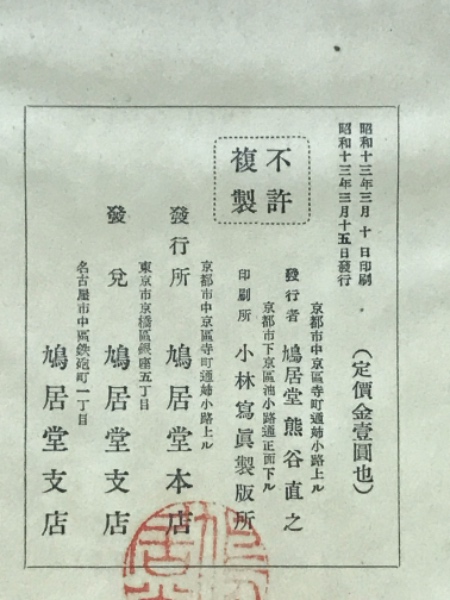 昭和十三年三月 十 日印刷
昭和十三年三月十五日發行
(定價金壹圓也)
不許
複製
京都市中京區寺町通姉小路上ル
發行者 鳩居堂 熊谷直之
京都市下京區油小路通正面下ル
印刷所 小林寫眞製版所
京都市中京區寺町通姉小路上ル
發行所 鳩居堂本店
東京市京橋區銀座五丁目
發兌 鳩居堂支店
名古屋市中區鉄砲町一丁目
鳩居堂支店
鳩居